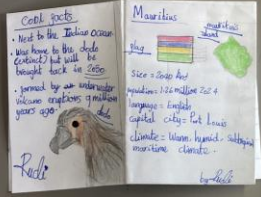 Cool facts
• Next to the Indian Ocean
• Was home to the dodo
(extinct) but will be
brought back in 2050
• formed by underwater
volcano eruptions 9 million
years ago.
dodo
Rudi
Mauritius
mauritius
island
flag
Size = 2040 km²
population = 1.26 million 2024
language = English
capital city = Port Louis
climate = Warm, humid, subtropical
maritime climate.
by Rudi